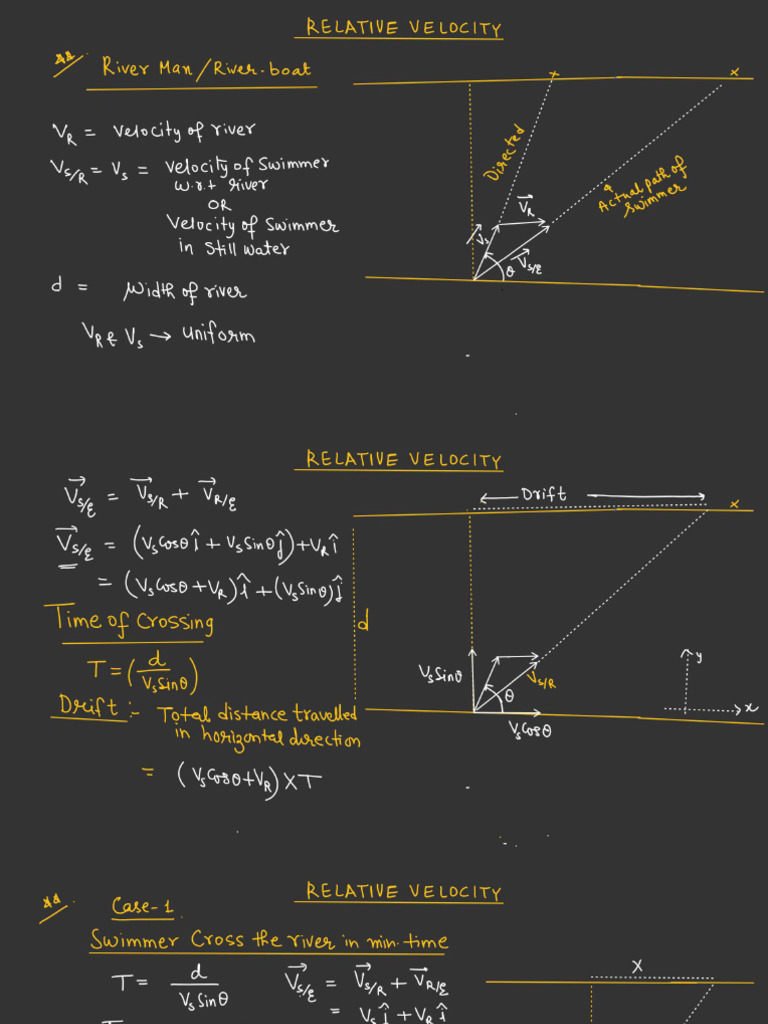 RELATIVE VELOCITY
River Man/River-boat
V_R = Velocity of river
V_S/R = V_S = Velocity of Swimmer
w.r.t river
OR
Velocity of Swimmer
in still water
d = Width of river
V_R & V_S → uniform
x
x
Directed
Actual path of
swimmer
V_R
V_S
θ
V_S/E
RELATIVE VELOCITY
V_S/E = V_S/R + V_R/E
V_S/E = (V_S Cosθ î + V_S Sinθ ĵ) + V_R î
= (V_S Cosθ + V_R) î + (V_S Sinθ) ĵ
Time of Crossing
T = (d / V_S Sinθ)
Drift :- Total distance travelled
in horizontal direction
= (V_S Cosθ + V_R) X T
Drift
x
d
V_S Sinθ
V_S/R
θ
V_S Cosθ
y
x
RELATIVE VELOCITY
Case-1
Swimmer Cross the river in min. time
T = d / V_S Sinθ
V_S/E = V_S/R + V_R/E
= V_S ĵ + V_R î
X